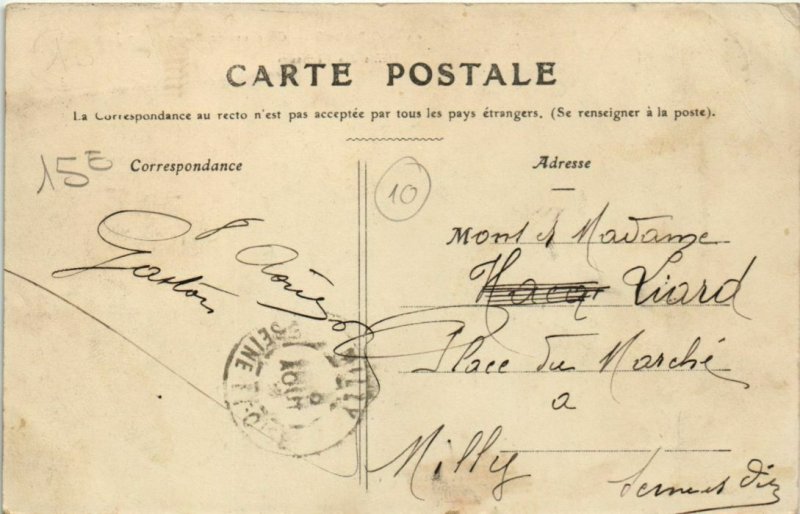 CARTE POSTALE
La Correspondance au recto n'est pas acceptée par tous les pays étrangers. (Se renseigner à la poste).
15E
Correspondance
8 Août
Gaston
10
Adresse
Mons et Madame
Liard
Place du Marché
a
Milly
Seine et
MILLY
SEINE
AOUT